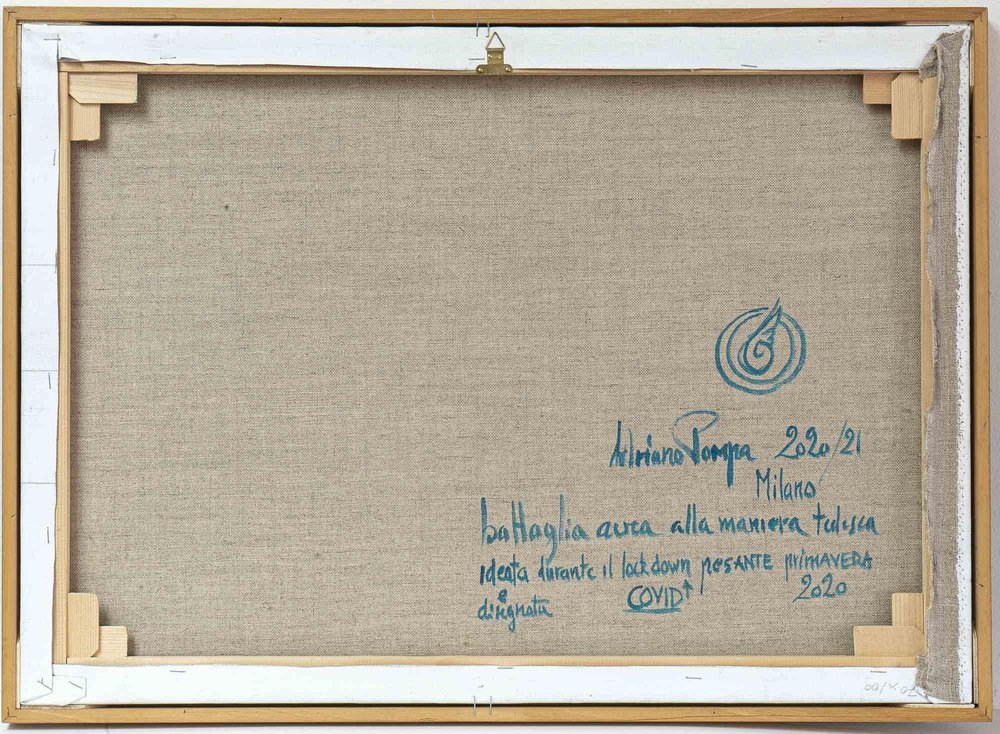 Adriano Pompa 2020/21
Milano
battaglia aurea alla maniera tedesca
ideata durante il lockdown pesANTE primAVERA
e COVID↑ 2020
disegnata
70 x 100